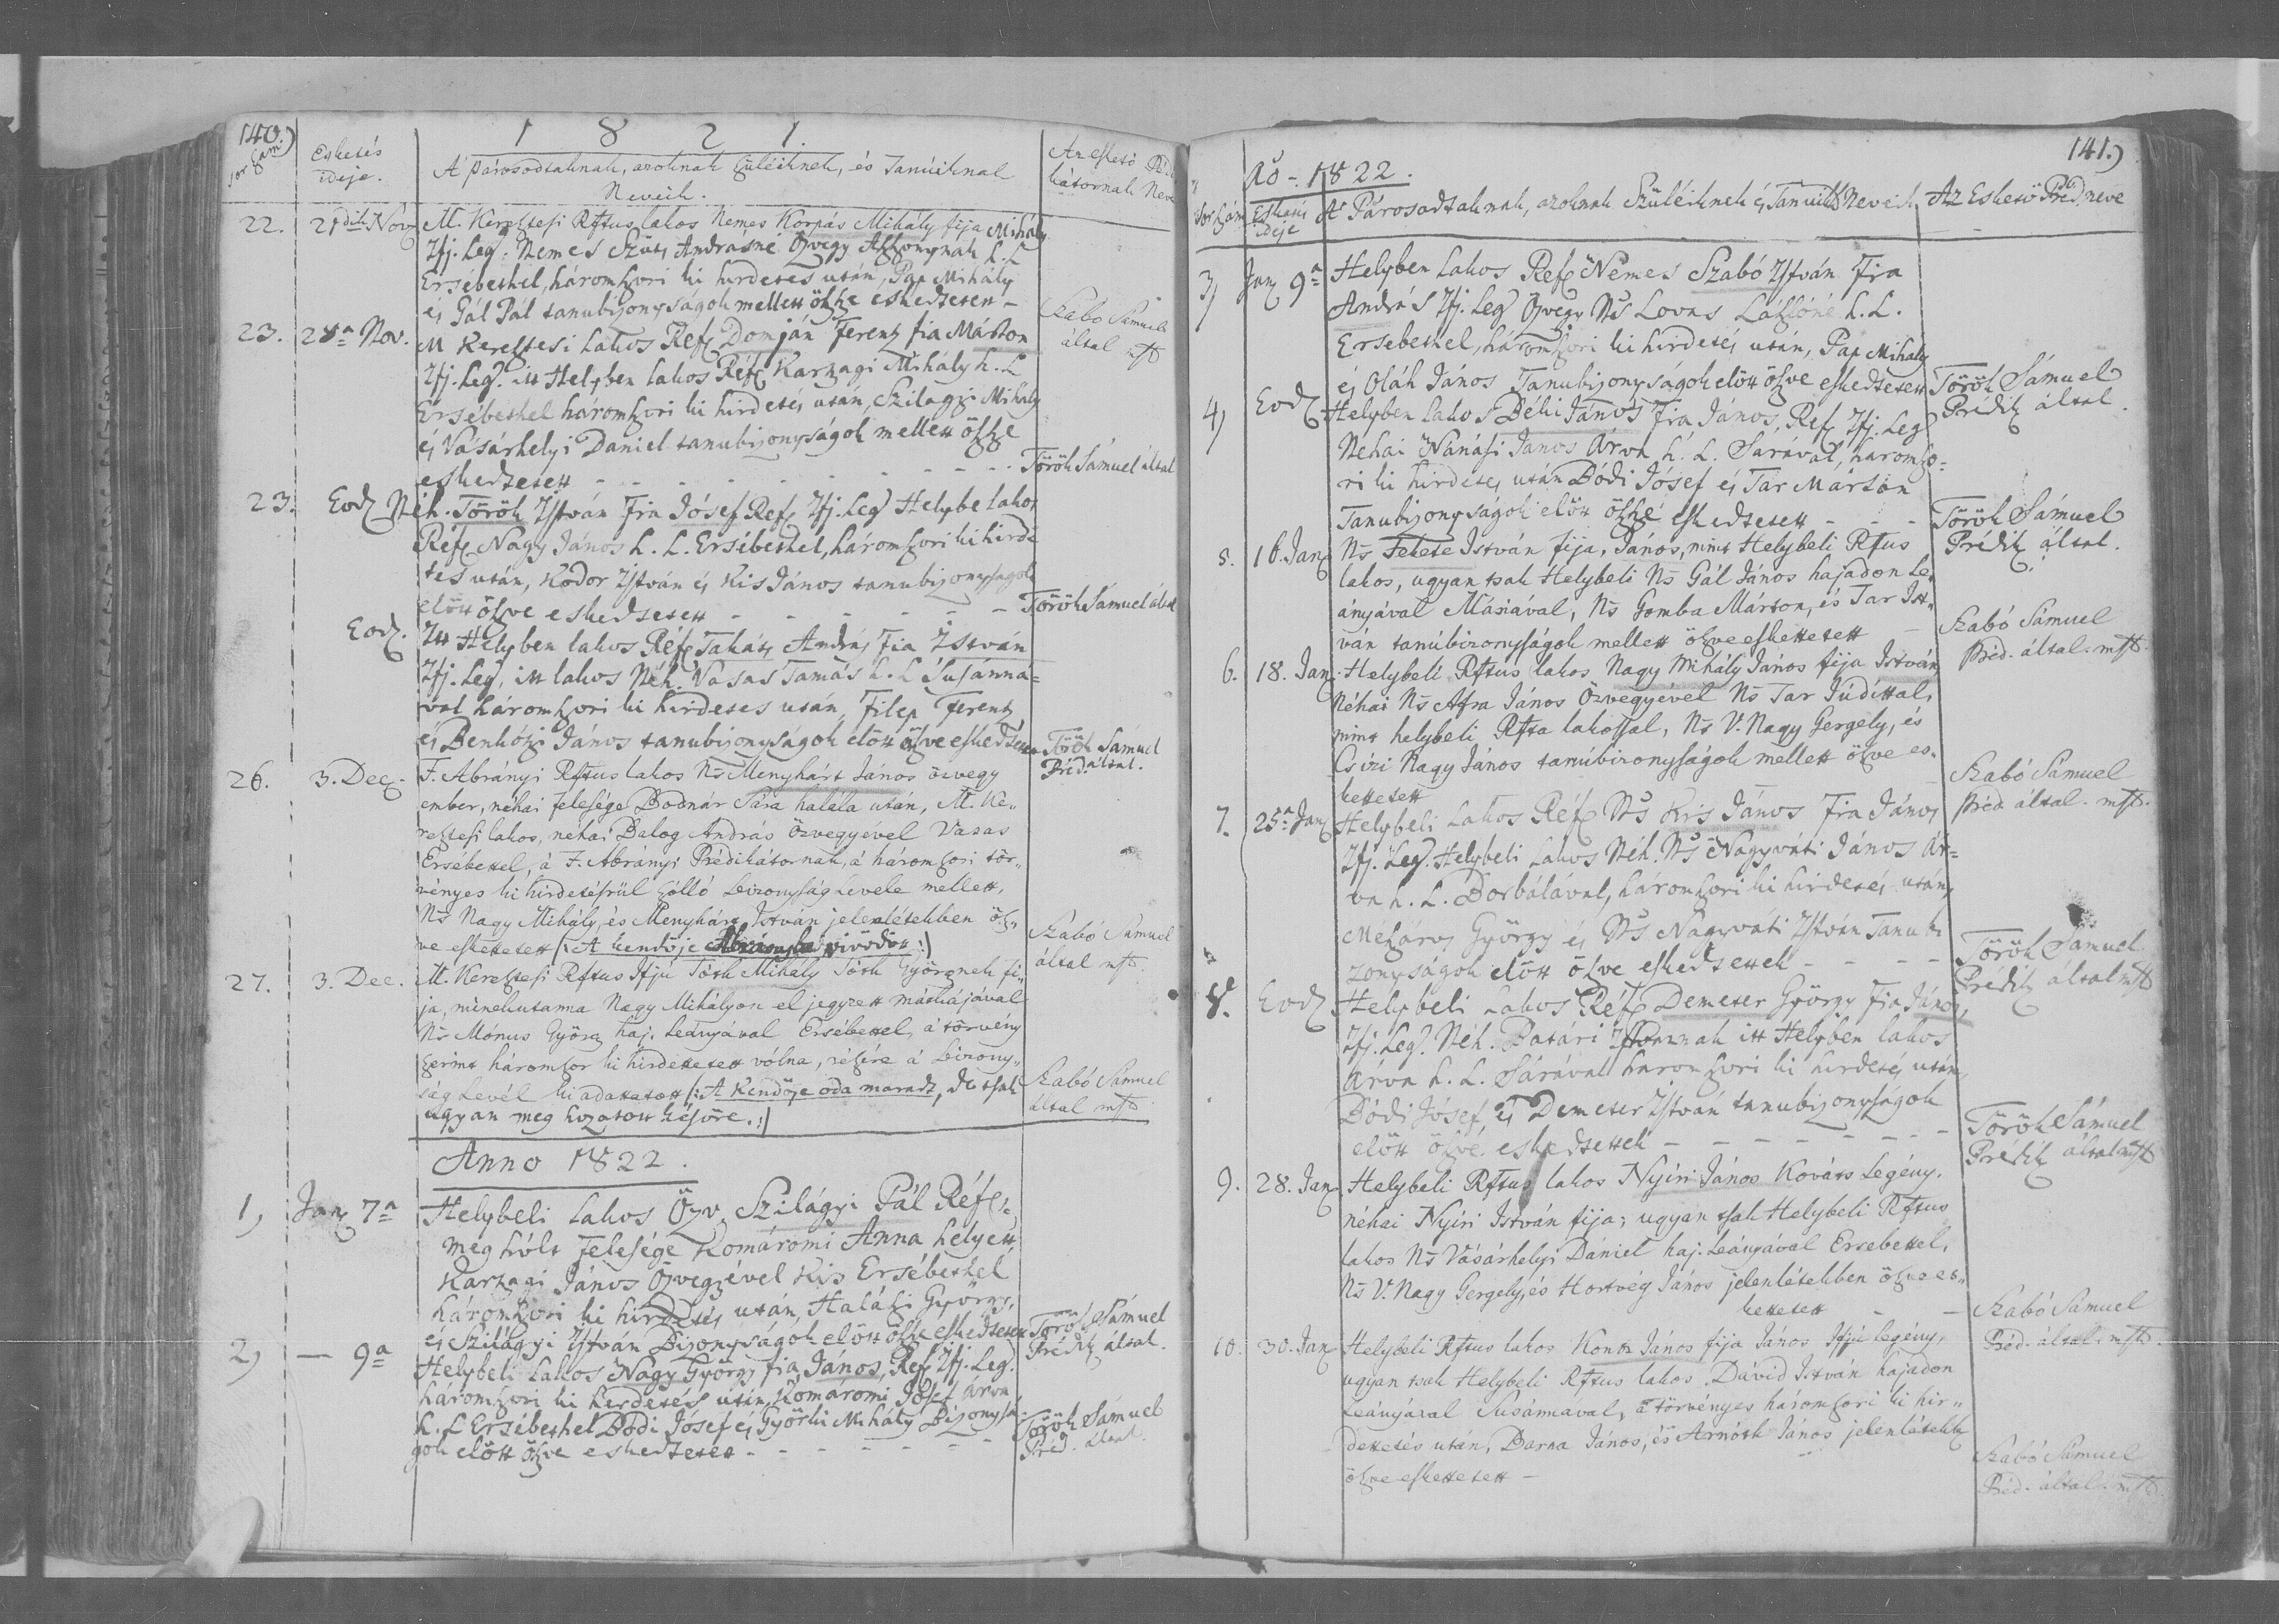 140.)
1 8 2 1.
Sor Szám
Esketés ideje.
A' párosodtaknak, azoknak Szüléiknek, és Tanúiknak
Neveik.
Az eskető Prédikátornak Neve
22. 21dik Nov. M. Keresztesi Rftus lakos Nemes Korpás Mihály fija Mihály
Ifj. Leg. Nemes Szűts Andrásné Özvegy Aszszonynak h. L
Ersébethel, háromszori ki hirdetés után, Pap Mihály
és Gál Pál tanubizonyságok mellett öszsze eskedtetett -
Szabó Sámuel
által mp
23. 28a Nov. M Keresztesi lakos Ref. Domján Ferentz fia Márton
Ifj. Leg. itt Helyben lakos Réf. Karzagi Mihály h. L
Ersébethel háromszori ki hirdetés után, Szilágyi Mihály
és Vásárhelyi Daniel tanubizonyságok mellett öszsze
eskedtetett - - - - - - Török Sámuel által
23. Eod. Néh. Török István Fia Jósef Ref. Ifj. Leg Helybe lakos
Réf. Nagy János h. L. Ersébethel, háromszori ki hirde
tés után, Kódor István és Kis János tanubizonyságok
előtt öszve eskedtetett - - - - - - Török Sámuel által
Eod. Itt Helyben lakos Réf. Takáts András Fia István
Ifj. Leg, itt lakos Néh. Vasas Tamás h. L Susánná=
val háromszori ki hirdetés után, Filep Ferentz
és Benkőzi János tanubizonyságok előtt öszve eskedtetett
Török Sámuel
Préd. által.
26. 3. Dec. F. Abrányi Rftus lakos Ns Menyhárt János özvegy
ember, néhai felesége Bodnár Sára halála után, M. Ke„
resztesi lakos, néhai Balog András Özvegyével Vasas
Ersébettel, á F. Abrányi Prédikátornak, á háromszori tör„
vényes ki hirdetésrűl szólló bizonyság levele mellett,
Ns Nagy Mihály, és Menyhárt István jelenlétekben ösz„
ve eskettetett (: A kendője Abrányba vivődött :)
Szabó Sámuel
által mp.
27. 3. Dec. M. Keresztesi Rftus Ifjú Tóth Mihály Tóth Györgynek fi„
ja, minekutánna Nagy Mihályon el jegyzett mátkájával
Ns Mónus Györg haj. leányával Ersébettel, á törvény
szerint háromszor ki hirdettetett vólna, részére á bizony„
ság levél ki adattatott (: A Kendője oda maradt, de tsak
ugyan meg hozatott késöre. :)
Szabó Sámuel
által mp.
Anno 1822.
1, Jan. 7a Helybeli lakos Özv. Szilágyi Pál Réf.
meg hólt Felesége Komáromi Anna helyett
Karzagi János Özvegyével Kis Ersébethel
háromszori ki hirdetés után, Haláki György,
és Szilágyi István Bizonyságok előtt öszsze eskedtetett
Török Sámuel
Prédik által.
2, — 9a Helybeli lakos Nagy György fia János, Ref. Ifj. Leg.
háromszori ki hirdetés után Komáromi Jósef árva
h. L Ersébethel Bódi Jósef és Györki Mihály Bizonysá-
gok előtt öszve eskedtetett - - - - - - -
Török Sámuel
Préd. által.
141.)
Aõ -. 1822.
Sor Szám
Esketés ideje
A' Párosodtaknak, azoknak Szüléiknek és Tanuik Neveik
Az Eskető Préd. neve
3, Jan. 9a Helyben Lakos Ref. Nemes Szabó István Fia
András Ifj. Leg Özvegy Ns Lovas Lászlóné h. L.
Ersebethel, háromszori ki hirdetés után, Pap Mihály
és Oláh János Tanubizonyságok előtt öszve eskedtetett
Török Sámuel
Prédik által.
4, Eod. Helyben lakos Béki János Fia János, Ref. Ifj. Leg
Néhai Nánási János Árva h. L. Sárával, háromszo=
ri ki hirdetés után Bódi Jósef és Tar Márton
Tanubizonyságok előtt öszsze eskedtetett - - -
Török Sámuel
Prédik által.
5. 16. Jan. Ns Fekete István fija, János, mint Helybeli Rftus
lakos, ugyan tsak Helybeli Ns Gál János hajadon le„
ányával Máriával, Ns Gomba Márton, és Tar Ist„
ván tanúbizonyságok mellett öszve eskettetett -
Szabó Sámuel
Préd. által. mp.
6. 18. Jan. Helybeli Rftus lakos Nagy Mihály János fija István,
Néhai Ns Afra János Özvegyével Ns Tar Júdittal,
mint helybeli Rfta lakossal, Ns V. Nagy Gergely, és
Csizi Nagy János tanúbizonyságok mellett öszve es„
kettetett
Szabó Sámuel
Préd. által. mp.
7. 25a Jan. Helybeli Lakos Réf. Ns Kis János Fia János
Ifj. Leg. Helybeli lakos Néh. Ns Nagyváti János Ár=
va h. L. Borbálával, háromszori ki hirdetés után,
Mészáros György és Ns Nagyváti István Tanubi
zonyságok előtt öszve eskedtettek - - - -
Török Sámuel
Prédik által mp
8. Eod. Helybeli Lakos Réf. Demeter György Fia János,
Ifj. Leg. Néh. Batári Istvannak itt Helyben lakos
Árva h. L. Sárával háromszori ki hirdetés után
Bódi Jósef, és Demeter István tanubizonyságok
előtt öszve eskedtettek - - - - - - - -
Török Sámuel
Prédik által mp
9. 28. Jan. Helybeli Rftus lakos Nyíri János Kováts Legény,
néhai Nyíri István fija; ugyan tsak Helybeli Rftus
lakos Ns Vásárhelyi Dániel haj. leányával Ersebettel,
Ns V. Nagy Gergely, és Hortvég János jelenlétekben öszve es„
kettetett - -
Szabó Sámuel
Préd. által. mp.
10. 30. Jan. Helybeli Rftus lakos Kontz János fija János Ifjú legény,
ugyan tsak Helybeli Rftus lakos Dávid István hajadon
leányával Susánnával, a törvényes háromszori ki hir„
dettetés után, Barna János, és Arnóth János jelenlétekb
öszve eskettetett -
Szabó Sámuel
Préd. által. mp.